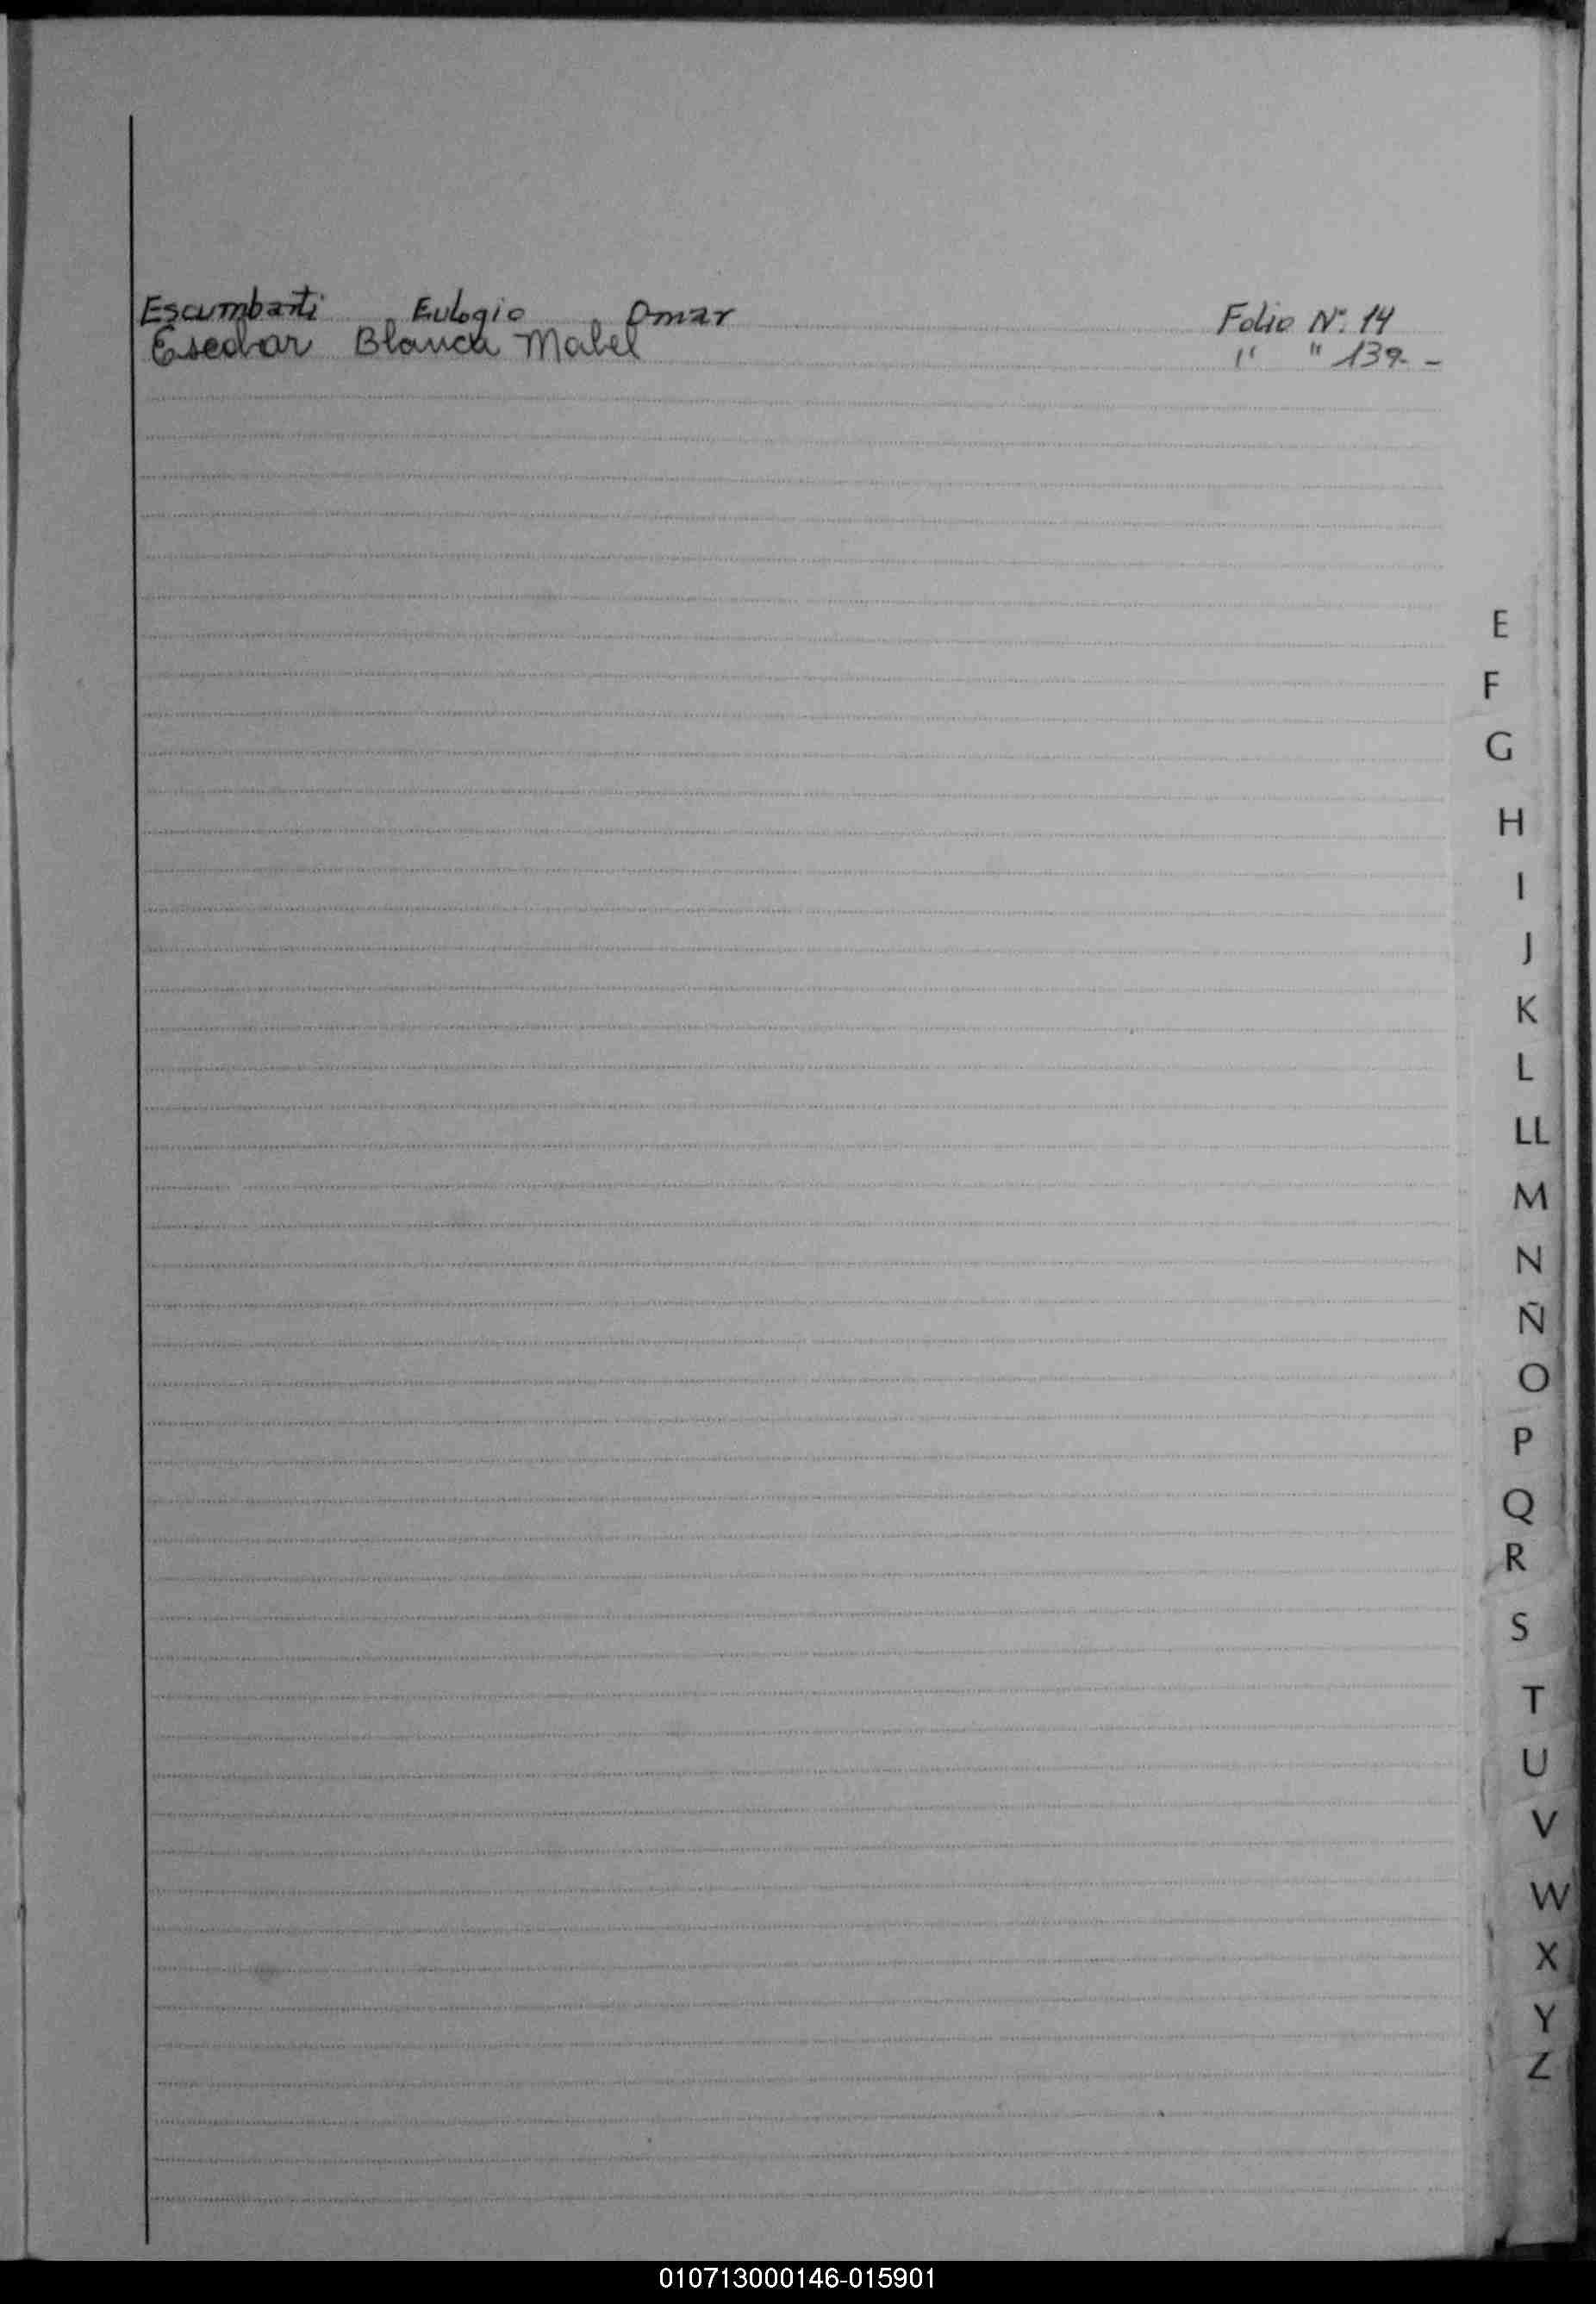 Escumbarti Eulogio Omar Folio Nº. 14
Escobar Blanca Mabel " " 139. -
E
F
G
H
I
J
K
L
LL
M
N
Ñ
O
P
Q
R
S
T
U
V
W
X
Y
Z
010713000146-015901